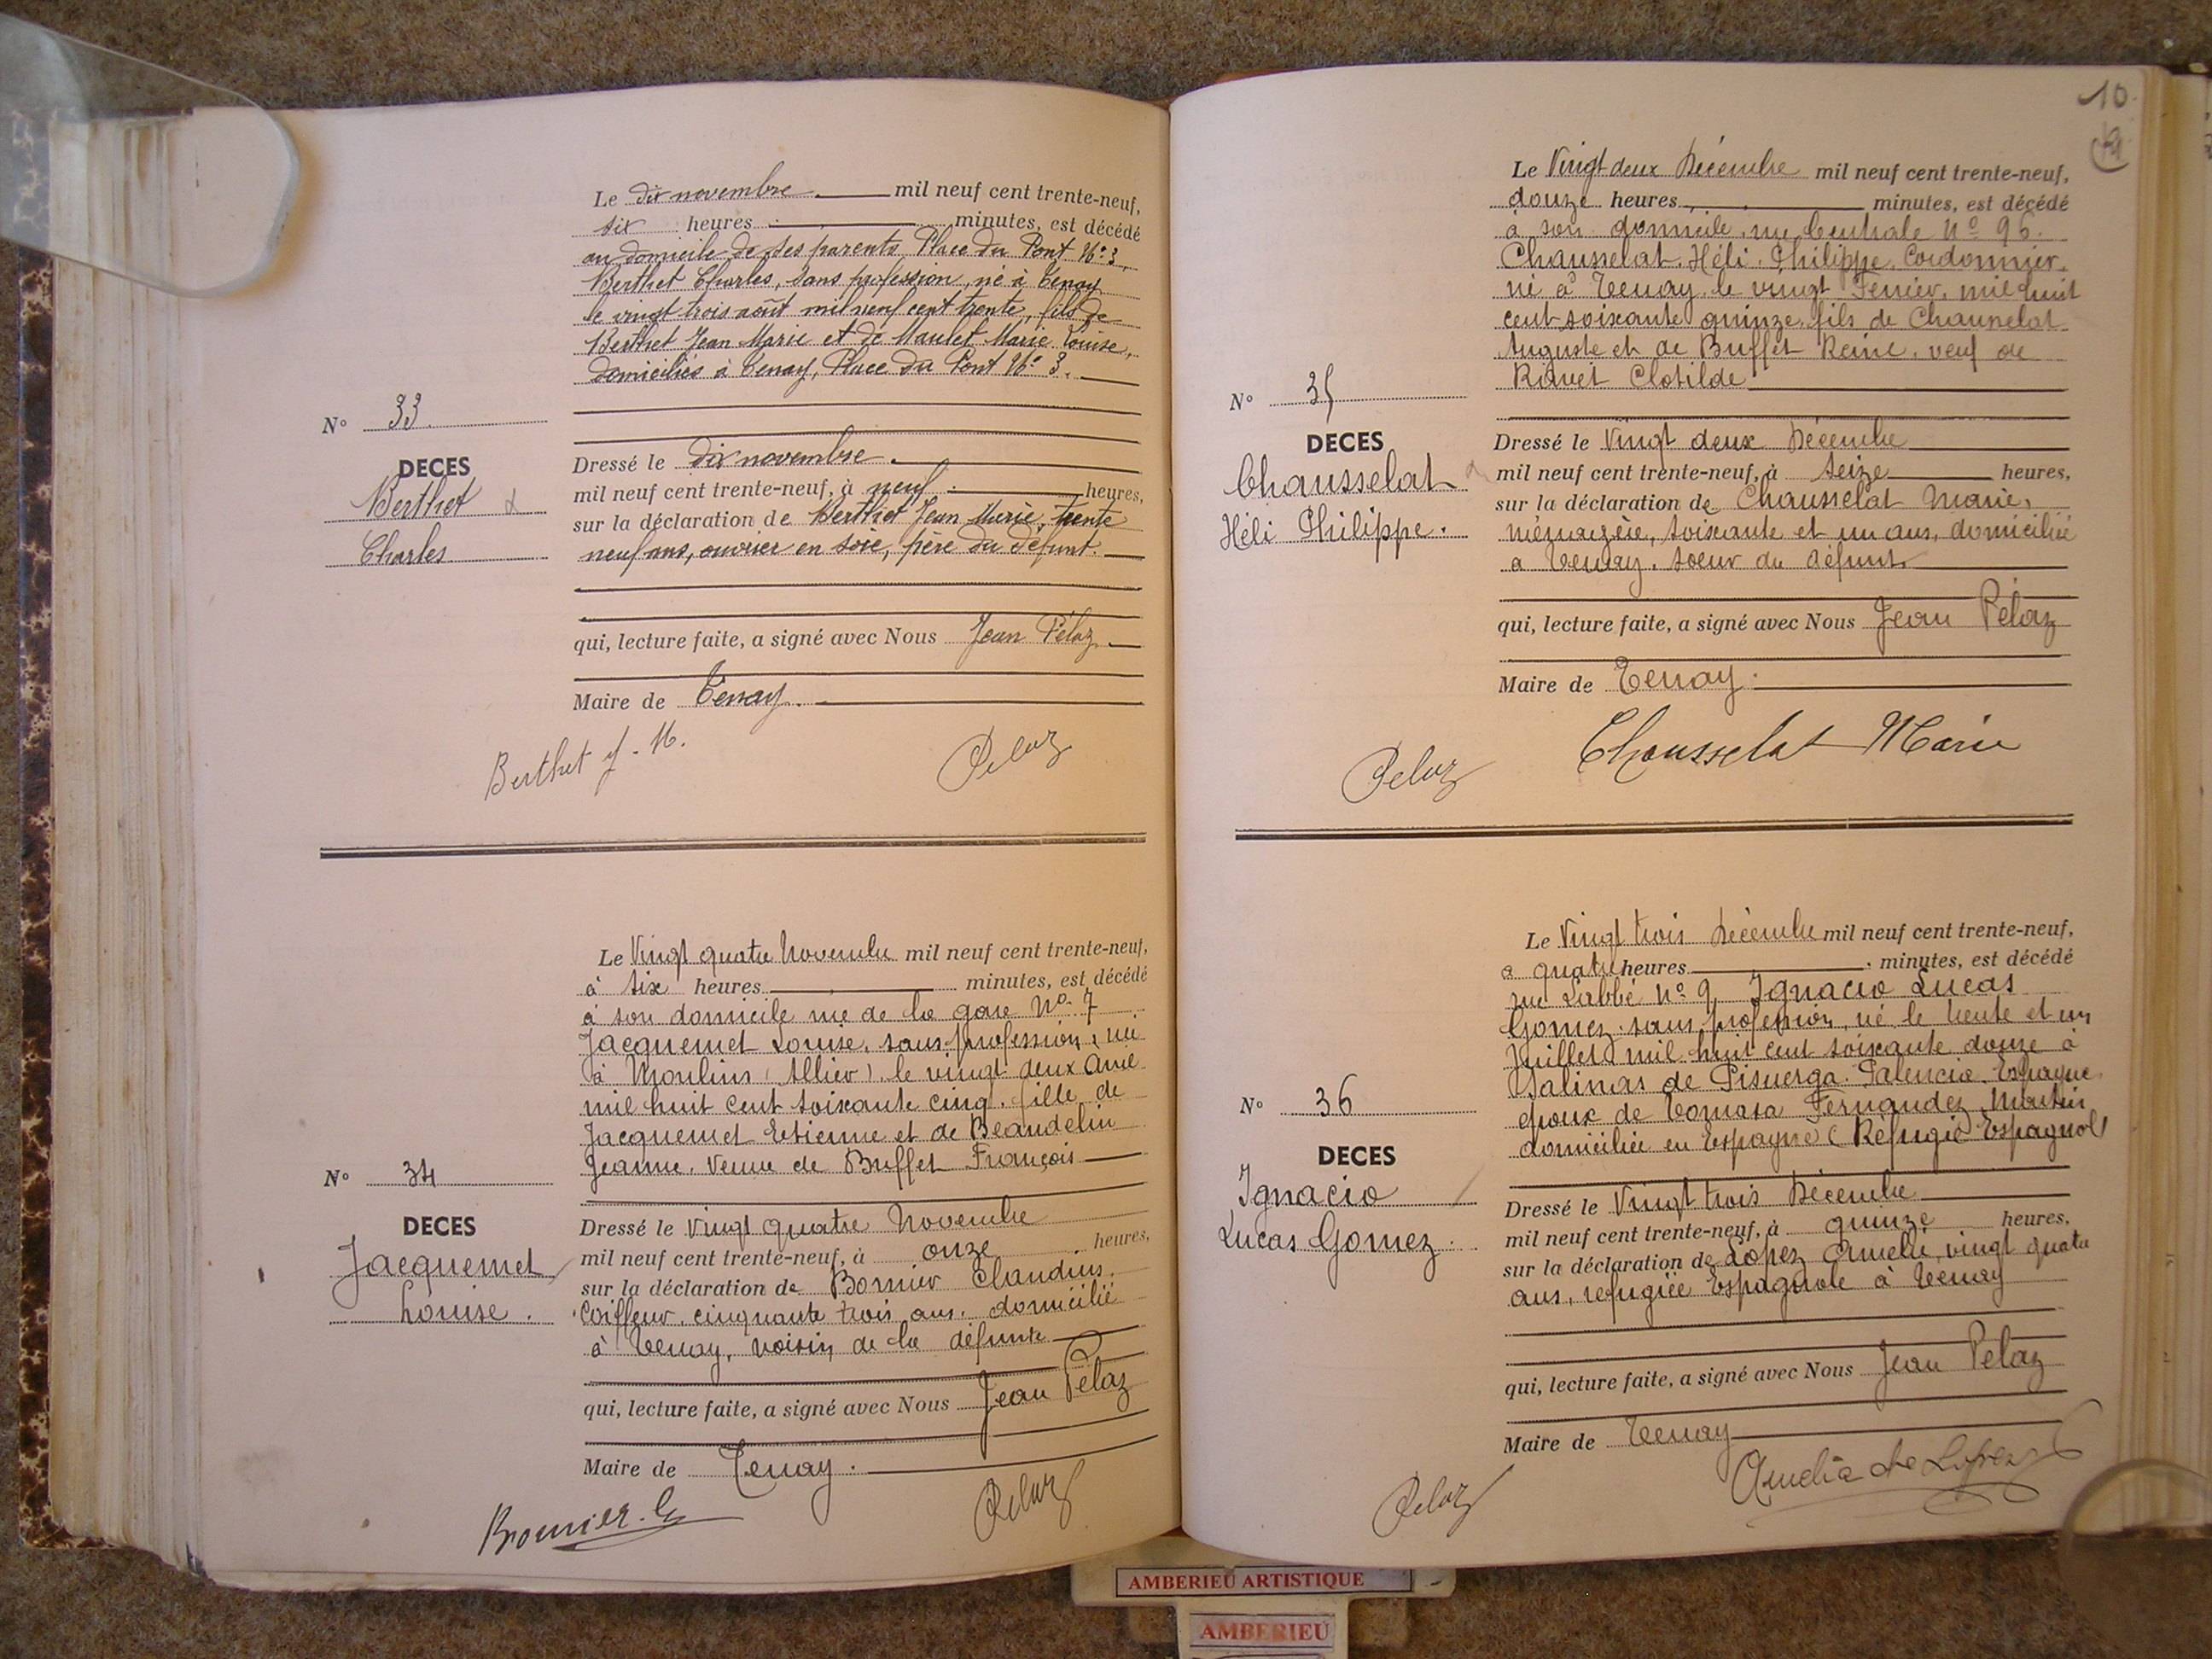 Le dix novembre mil neuf cent trente-neuf,
six heures minutes, est décédé
au domicile de ses parents, Place du Pont N° 3,
Berthet Charles, sans profession, né à Tenay
le vingt trois août mil neuf cent trente, fils de
Berthet Jean Marie et de Maulet Marie Louise,
domiciliés à Tenay, Place du Pont N° 3.
N° 33
DECES
Berthet
Charles
Dressé le dix novembre
mil neuf cent trente-neuf, à neuf heures,
sur la déclaration de Berthet Jean Marie, trente
neuf ans, ouvrier en soie, père du défunt.
qui, lecture faite, a signé avec Nous Jean Pélaz
Maire de Tenay.
Berthet J-M. Pelaz
Le Vingt quatre Novembre mil neuf cent trente-neuf,
à six heures minutes, est décédé
à son domicile rue de la gare N° 7
Jacquemet Louise, sans profession, née
à Moulins (Allier), le vingt deux Avril
mil huit cent soixante cinq, fille de
Jacquemet Etienne et de Beaudelin
Jeanne, Veuve de Buffet François
N° 34
DECES
Jacquemet
Louise.
Dressé le Vingt quatre Novembre
mil neuf cent trente-neuf, à onze heures,
sur la déclaration de Bornier Claudius,
Coiffeur, cinquante trois ans, domicilié
à Tenay, voisin de la défunte
qui, lecture faite, a signé avec Nous Jean Pelaz
Maire de Tenay.
Pelaz
10
Le Vingt deux Décembre mil neuf cent trente-neuf,
douze heures minutes, est décédé
à son domicile, rue Centrale N° 96.
Chausselat. Héli. Philippe. Cordonnier,
né à Tenay, le vingt Février, mil huit
cent soixante quinze, fils de Chausselat
Auguste et de Buffet Reine, veuf de
Clotilde
N° 35
DECES
Chausselat
Héli Philippe.
Dressé le Vingt deux Décembre
mil neuf cent trente-neuf, à seize heures,
sur la déclaration de Chausselat Marie,
ménagère, soixante et un ans, domiciliée
à Tenay, soeur du défunt.
qui, lecture faite, a signé avec Nous Jean Pélaz
Maire de Tenay.
Pelaz Chausselat Marie
Le Vingt trois Décembre mil neuf cent trente-neuf,
à quatre heures minutes, est décédé
rue Labbé N° 9, Ignacio Lucas
Gomez, sans profession, né le trente et un
Juillet mil huit cent soixante douze à
Salinas de Pisuerga. Palencia. Espagne.
époux de Tomasa Fernandez Martin
domiciliée en Espagne (Réfugié Espagnol)
N° 36
DECES
Ignacio
Lucas Gomez.
Dressé le Vingt trois Décembre
mil neuf cent trente-neuf, à quinze heures,
sur la déclaration de Lopez Amelie, vingt quatre
ans, refugiée Espagnole à Tenay
qui, lecture faite, a signé avec Nous Jean Pelaz
Maire de Tenay
Pelaz Amelia de Lopez
AMBERIEU ARTISTIQUE
AMBERIEU